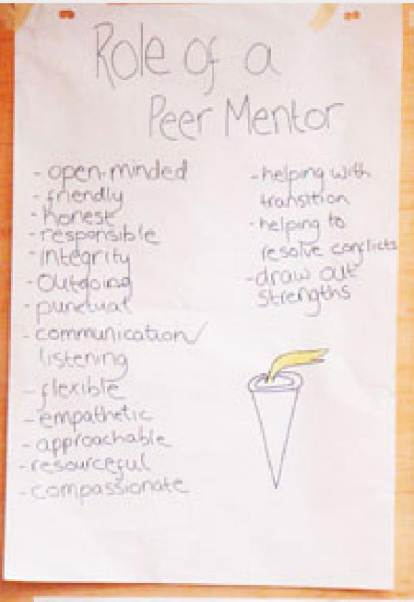 Role of a
Peer Mentor
- open-minded
- friendly
- honest
- responsible
- Integrity
- Outgoing
- punctual
- communication/
listening
- flexible
- empathetic
- approachable
- resourceful
- compassionate
- helping with
transition
- helping to
resolve conflicts
- draw out
strengths